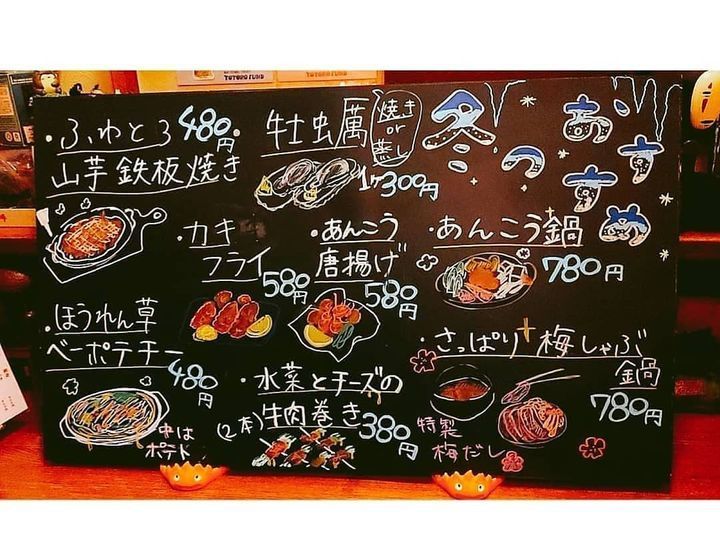 ・ふわとろ 480円
山芋鉄板焼き
・牡虫厲 焼き or 蒸し
1ヶ300円
冬のおすすめ
・カキ
フライ
580円
・あんこう
唐揚げ
580円
・あんこう鍋
780円
・ほうれん草
ベーポテチー
480円
中は
ポテト
・水菜とチーズの
(2本)牛肉巻き
380円
・さっぱり梅しゃぶ
鍋
780円
特製
梅だし